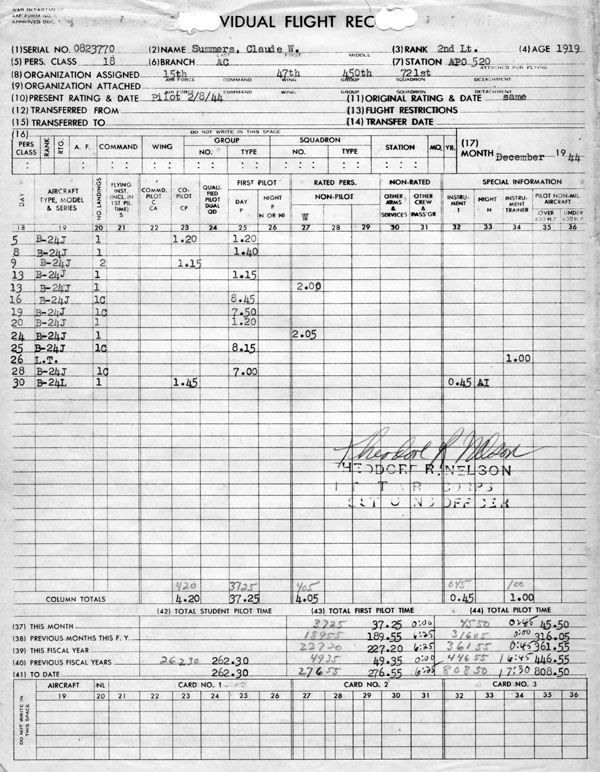 WAR DEPARTMENT
AAF FORM NO.
APPROVED DEC.
VIDUAL FLIGHT REC
(1) SERIAL NO. 0823770 (2) NAME Summers, Claude W. (3) RANK 2nd Lt. (4) AGE 1919
LAST FIRST MIDDLE
(5) PERS. CLASS 18 (6) BRANCH AC (7) STATION APO 520
(8) ORGANIZATION ASSIGNED 15th 47th 450th 721st ATTACHED FOR FLYING
AIR FORCE COMMAND WING GROUP SQUADRON DETACHMENT
(9) ORGANIZATION ATTACHED
AIR FORCE COMMAND WING GROUP SQUADRON DETACHMENT
(10) PRESENT RATING & DATE Pilot 2/8/44 (11) ORIGINAL RATING & DATE same
(12) TRANSFERRED FROM (13) FLIGHT RESTRICTIONS
(15) TRANSFERRED TO (14) TRANSFER DATE
(16) DO NOT WRITE IN THIS SPACE
PERS CLASS RANK RTG. A. F. COMMAND WING GROUP NO. TYPE SQUADRON NO. TYPE STATION MO. YR. (17) MONTH December 1944
DAY AIRCRAFT TYPE, MODEL & SERIES NO. LANDINGS FLYING INST. (INCL. IN 1ST PIL. TIME) S COMMD. PILOT C CA CO-PILOT CP QUALI-FIED PILOT DUAL QD FIRST PILOT DAY P NIGHT P N OR NI RATED PERS. NON-PILOT W NON-RATED OTHER ARMS & SERVICES OTHER CREW & PASS'GR SPECIAL INFORMATION INSTRU-MENT I NIGHT N INSTRU-MENT TRAINER PILOT NON-MIL. AIRCRAFT OVER 400 H.P. UNDER 400 H.P.
18 19 20 21 22 23 24 25 26 27 28 29 30 31 32 33 34 35 36
5 B-24J 1 1.20 1.20
8 B-24J 1 1.40
9 B-24J 2 1.15
13 B-24J 1 1.15
13 B-24J 1 2.00
16 B-24J 1C 8.45
19 B-24J 1C 7.50
20 B-24J 1 1.20
24 B-24J 1 2.05
25 B-24J 1C 8.15
26 L.T. 1.00
28 B-24J 1C 7.00
30 B-24L 1 1.45 0.45 AI
Theodore R Nelson
THEODORE R. NELSON
OFFICER
420 3725 405 045 100
COLUMN TOTALS 4.20 37.25 4.05 0.45 1.00
(42) TOTAL STUDENT PILOT TIME (43) TOTAL FIRST PILOT TIME (44) TOTAL PILOT TIME
(37) THIS MONTH 3725 37.25 0:00 4550 0:45 45.50
(38) PREVIOUS MONTHS THIS F. Y. 18955 189.55 6:25 31605 0:00 316.05
(39) THIS FISCAL YEAR 22720 227.20 6:25 36155 0:45 361.55
(40) PREVIOUS FISCAL YEARS 26230 262.30 4935 49.35 0:00 44655 16:45 446.55
(41) TO DATE 262.30 27655 276.55 6:25 80850 17:30 808.50
DO NOT WRITE IN THIS SPACE
AIRCRAFT NL CARD NO. 1 CARD NO. 2 CARD NO. 3
19 20 21 22 23 24 25 26 27 28 29 30 31 32 33 34 35 36